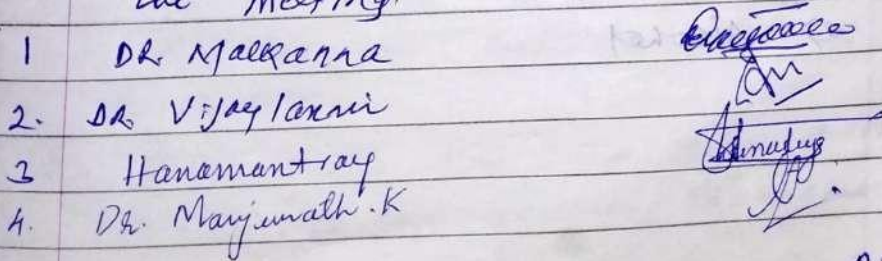 the meeting.
1 DR. Malkanna
2. DR. Vijaylaxmi
3 Hanamantray
4. DR. Manjunath.K